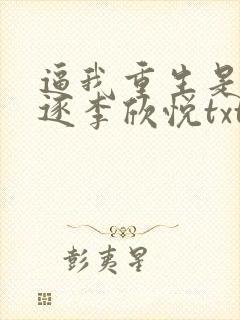 逼我重生是
逐李欣悦txt
彭夷星